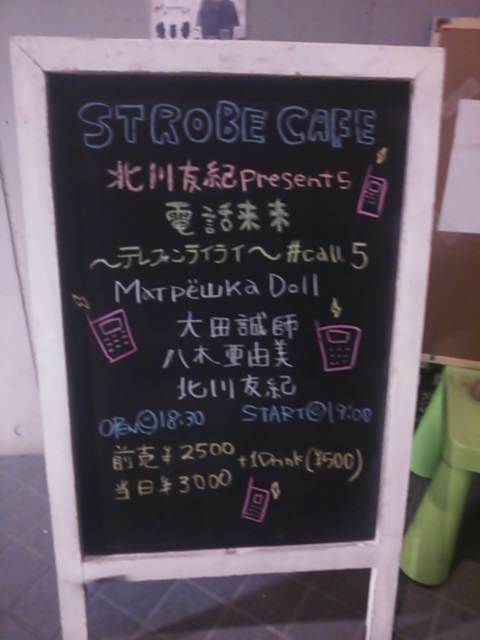 STROBE CAFE
北川友紀presents
電話来来
～テレフォンライライ～#call 5
Матрёшка Doll
大田誠師
八木亜由美
北川友紀
OPEN 18:30 START 19:00
前売¥2500 +1Drink(¥500)
当日¥3000